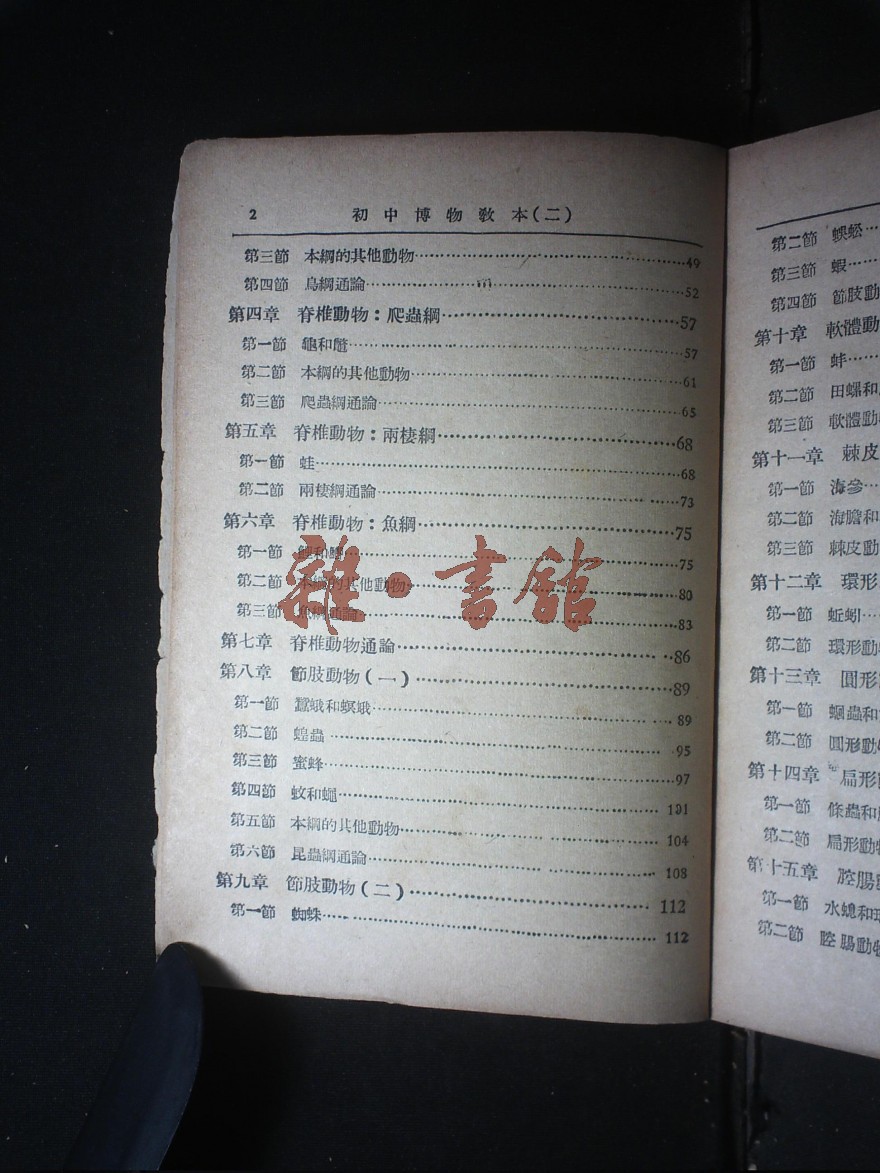 2 初中博物教本(二)
第三節 本綱的其他動物……49
第四節 鳥綱通論……52
第四章 脊椎動物：爬蟲綱……57
第一節 龜和鼈……57
第二節 本綱的其他動物……61
第三節 爬蟲綱通論……65
第五章 脊椎動物：兩棲綱……68
第一節 蛙……68
第二節 兩棲綱通論……73
第六章 脊椎動物：魚綱……75
第一節 鯉和……75
第二節 本綱的其他動物……80
第三節 魚綱通論……83
第七章 脊椎動物通論……86
第八章 節肢動物(一)……89
第一節 蠶蛾和螟蛾……89
第二節 蝗蟲……95
第三節 蜜蜂……97
第四節 蚊和蠅……101
第五節 本綱的其他動物……104
第六節 昆蟲綱通論……108
第九章 節肢動物(二)……112
第一節 蜘蛛……112
雜·書館
第二節 蜈蚣……
第三節 蝦……
第四節 節肢動
第十章 軟體動
第一節 蚌……
第二節 田螺和
第三節 軟體動
第十一章 棘皮
第一節 海參…
第二節 海膽和
第三節 棘皮動
第十二章 環形
第一節 蚯蚓…
第二節 環形動
第十三章 圓形
第一節 蛔蟲和
第二節 圓形動
第十四章 扁形
第一節 條蟲和
第二節 扁形動
第十五章 腔腸
第一節 水螅和
第二節 腔腸動